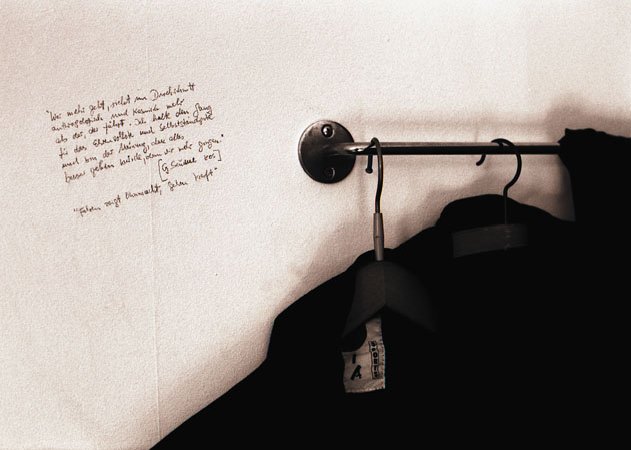 "Wer mehr geht, sieht im Durchschnitt
anthropologisch und kosmisch mehr
als der, der fährt. Ich halte den Gang
für das Ehrenvollste und Selbstständigste
und bin der Meinung, dass alles
besser gehen würde, wenn wir mehr gingen"
[G. Seume 805]
"Fahren zeigt Ohnmacht, Gehen Kraft"
SPORTS